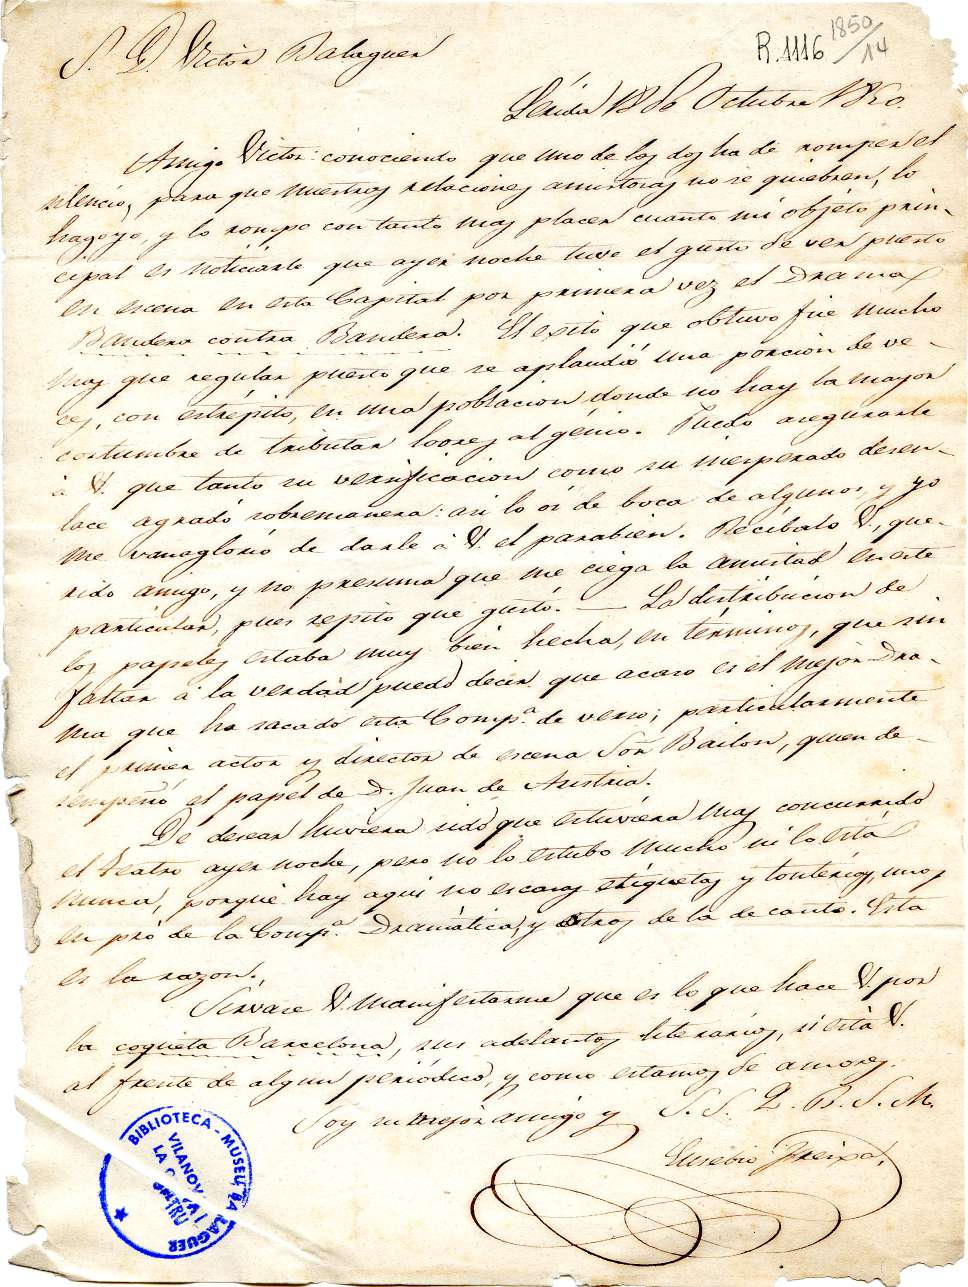 R. 1116 1850/14
S. D. Victor Balaguer
Lérida 18 de Octubre 1850.
Amigo Victor: conociendo que uno de los dos ha de romper el
silencio, para que nuestras relaciones amistosas no se quiebren, lo
hago yo, y lo rompo con tanto mas placer cuanto mi objéto prin-
cipal es noticiarle que ayer noche tuve el gusto de ver puesto
en escena en esta Capital por primera vez el Drama
Bandera contra Bandera. El exito que obtuvo fue mucho
mas que regular puesto que se aplaudió una porcion de ve-
ces, con estrépito, en una poblacion donde no hay la mayor
costumbre de tributar loores al génio. Puedo asegurarle
á V. que tanto su versificacion como su inesperado desen-
lace agradó sobremanera: asi lo oí de boca de algunos, y yo
me vanaglorio de darle á V. el parabien. Recíbalo V., que-
rido amigo, y no presuma que me ciega la amistad en este
particular, pues repito que gustó. — La distribucion de
los papeles estaba muy bien hecha, en terminos, que sin
faltar á la verdad puedo decir que acaso es el mejor Dra-
ma que ha sacado esta Comp.ª de verso; particularmente
el primer actor y director de escena Sor. Bailon, quien de-
sempeñó el papel de D. Juan de Austria.
De desear huviera sido que estuviera mas concurrido
el teatro ayer noche, pero no lo estubo mucho ni lo está
nunca, porque hay aqui no escasas etiquetas y tonterias, unos
en pró de la Comp.ª Dramática, y otros de la de canto. Esta
es la razon.
Sirvase V. manifestarme que es lo que hace V. por
la coqueta Barcelona, sus adelantos literarios, si está V.
al frente de algun periódico, y como estamos de amores.
Soy su mejor amigo y S. S. Q. B. S. M.
Eusebio Freixa.
BIBLIOTECA-MUSEU BALAGUER
VILANOVA I
LA GELTRÚ